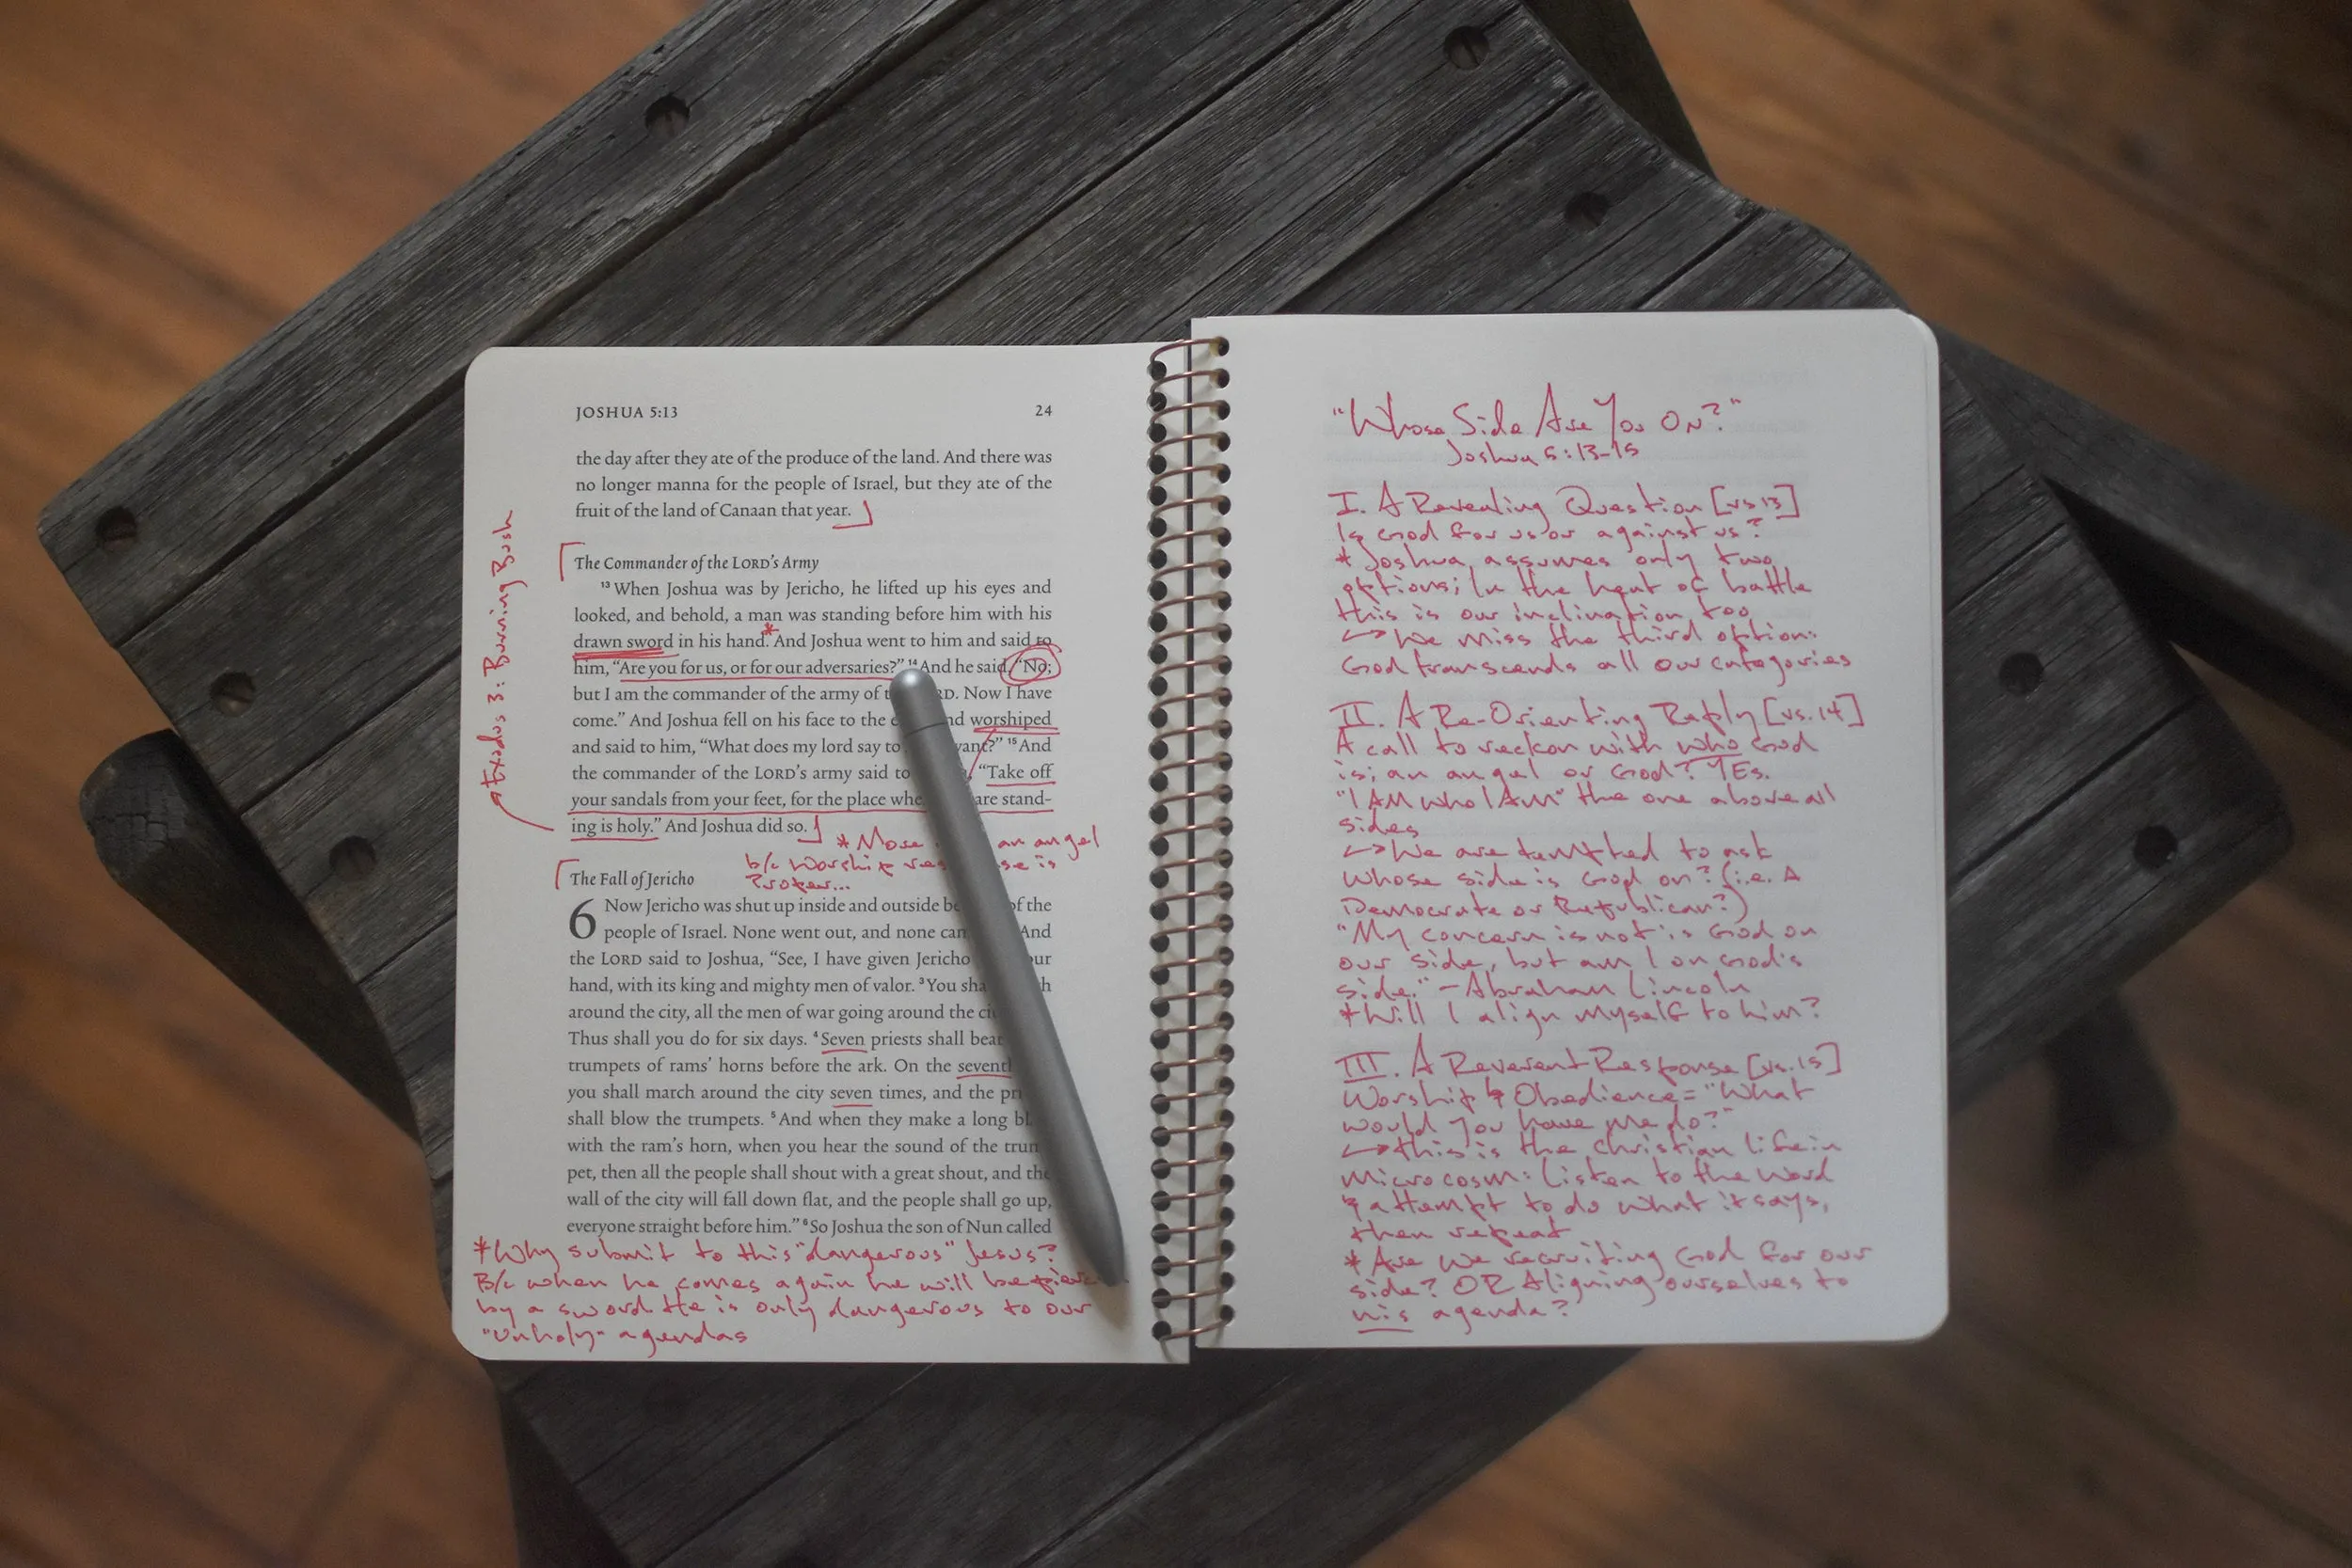 JOSHUA 5:13
24
the day after they ate of the produce of the land. And there was
no longer manna for the people of Israel, but they ate of the
fruit of the land of Canaan that year.
The Commander of the LORD's Army
13 When Joshua was by Jericho, he lifted up his eyes and
looked, and behold, a man was standing before him with his
drawn sword in his hand.* And Joshua went to him and said to
him, “Are you for us, or for our adversaries?” 14 And he said, “No;
but I am the commander of the army of t RD. Now I have
come.” And Joshua fell on his face to the nd worshiped
and said to him, “What does my lord say to vant?” 15 And
the commander of the LORD's army said to “Take off
your sandals from your feet, for the place whe are stand-
ing is holy.” And Joshua did so.
Exodus 3: Burning Bush
* More an angel
b/c worship res se is
proper...
The Fall of Jericho
6 Now Jericho was shut up inside and outside be of the
people of Israel. None went out, and none can And
the LORD said to Joshua, “See, I have given Jericho our
hand, with its king and mighty men of valor. 3 You sha h
around the city, all the men of war going around the ci
Thus shall you do for six days. 4 Seven priests shall bear
trumpets of rams' horns before the ark. On the seventh
you shall march around the city seven times, and the pri
shall blow the trumpets. 5 And when they make a long bl
with the ram's horn, when you hear the sound of the trum
pet, then all the people shall shout with a great shout, and the
wall of the city will fall down flat, and the people shall go up,
everyone straight before him.” 6 So Joshua the son of Nun called
* Why submit to this "dangerous" Jesus?
B/c when he comes again he will be pierc
by a sword. He is only dangerous to our
"unholy" agendas
"Whose Side Are You On?"
Joshua 5:13-15
I. A Revealing Question [vs.13]
Is God for us or against us?
* Joshua assumes only two
options; In the heat of battle
this is our inclination too
↳ We miss the third option:
God transcends all our categories
II. A Re-Orienting Reply [vs.14]
A call to reckon with who God
is; an angel or God? YES.
"I AM who I AM" the one above all
sides
↳ We are tempted to ask
whose side is God on? (i.e. A
Democrate or Republican?)
"My concern is not is God on
our side, but am I on God's
side." - Abraham Lincoln
* Will I align myself to him?
III. A Reverent Response [vs.15]
Worship & Obedience = "What
would you have me do?"
↳ this is the christian life in
microcosm: Listen to the word
& attempt to do what it says,
then repeat
* Are we recruiting God for our
side? OR Aligning ourselves to
his agenda?